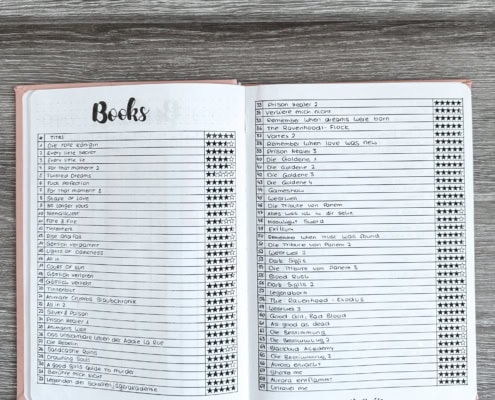 Books
# TITEL
1 Die rote Königin
2 Every little secret
3 Every little lie
4 For that moment 2
5 Twisted Dreams
6 Fuck Perfection
7 For that moment 3
8 Shape of Love
9 No longer yours
10 Nemesister
11 Fate & Fire
12 Tintenherz
13 Rise and Fall
14 Göttlich verdammt
15 Lights of Darkness
16 All in
17 Court of Sun
18 Göttlich verloren
19 Göttlich verliebt
20 Tintenblut
21 Animant Crumbs Staubchronik
22 All in 2
23 Silver & Poison
24 Prison Healer 1
25 Animants Welt
26 Das unsichtbare Leben der Addie La Rue
27 Die Rebellin
28 Sandcastle Ruins
29 Drowning Souls
30 A Good Girls Guide to Murder
31 Berühre mich nicht
32 Legenden der Schatten
33 Prison Healer 2
34 Verliere mich nicht
35 Remember when dreams were born
36 The Ravenhood: Flock
37 Vortex 2
38 Remember when love was new
39 Prison Healer 3
40 Die Goldene 1
41 Die Goldene 2
42 Die Goldene 3
43 Die Goldene 4
44 Gameshow
45 Weerwelt
46 Die Tribute von Panem
47 Alles was ich in dir sehe
48 Moonlight Sword
49 Erilyon
50 Remember when trust was found
51 Die Tribute von Panem 2
52 Weerwelt 2
53 Dark Sigils
54 Die Tribute von Panem 3
55 Blood Rush
56 Dark Sigils 2
57 Legendborn
58 The Ravenhood: Exodus
59 Weerwelt 3
60 Good Girl, Bad Blood
61 As good as dead
62 Die Bestimmung
63 Die Bestimmung 2
64 Blackbird Academy
65 Die Bestimmung 3
66 Aurora erwacht
67 Ignite me
68 Aurora entflammt
69 Unravel me